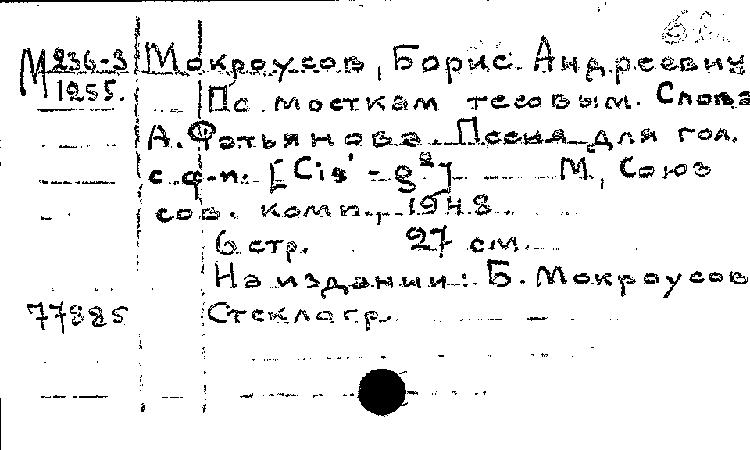 М 236-3 Мокроусов, Борис Андреевич
1255. По мосткам тесовым. Слова
А. Фатьянова. Песня для гол.
с ф-п. [Cis' - g²] М, Союз
сов. комп., 1948.
6 стр. 27 см.
На издании: Б. Мокроусов
77885 Стеклогр.